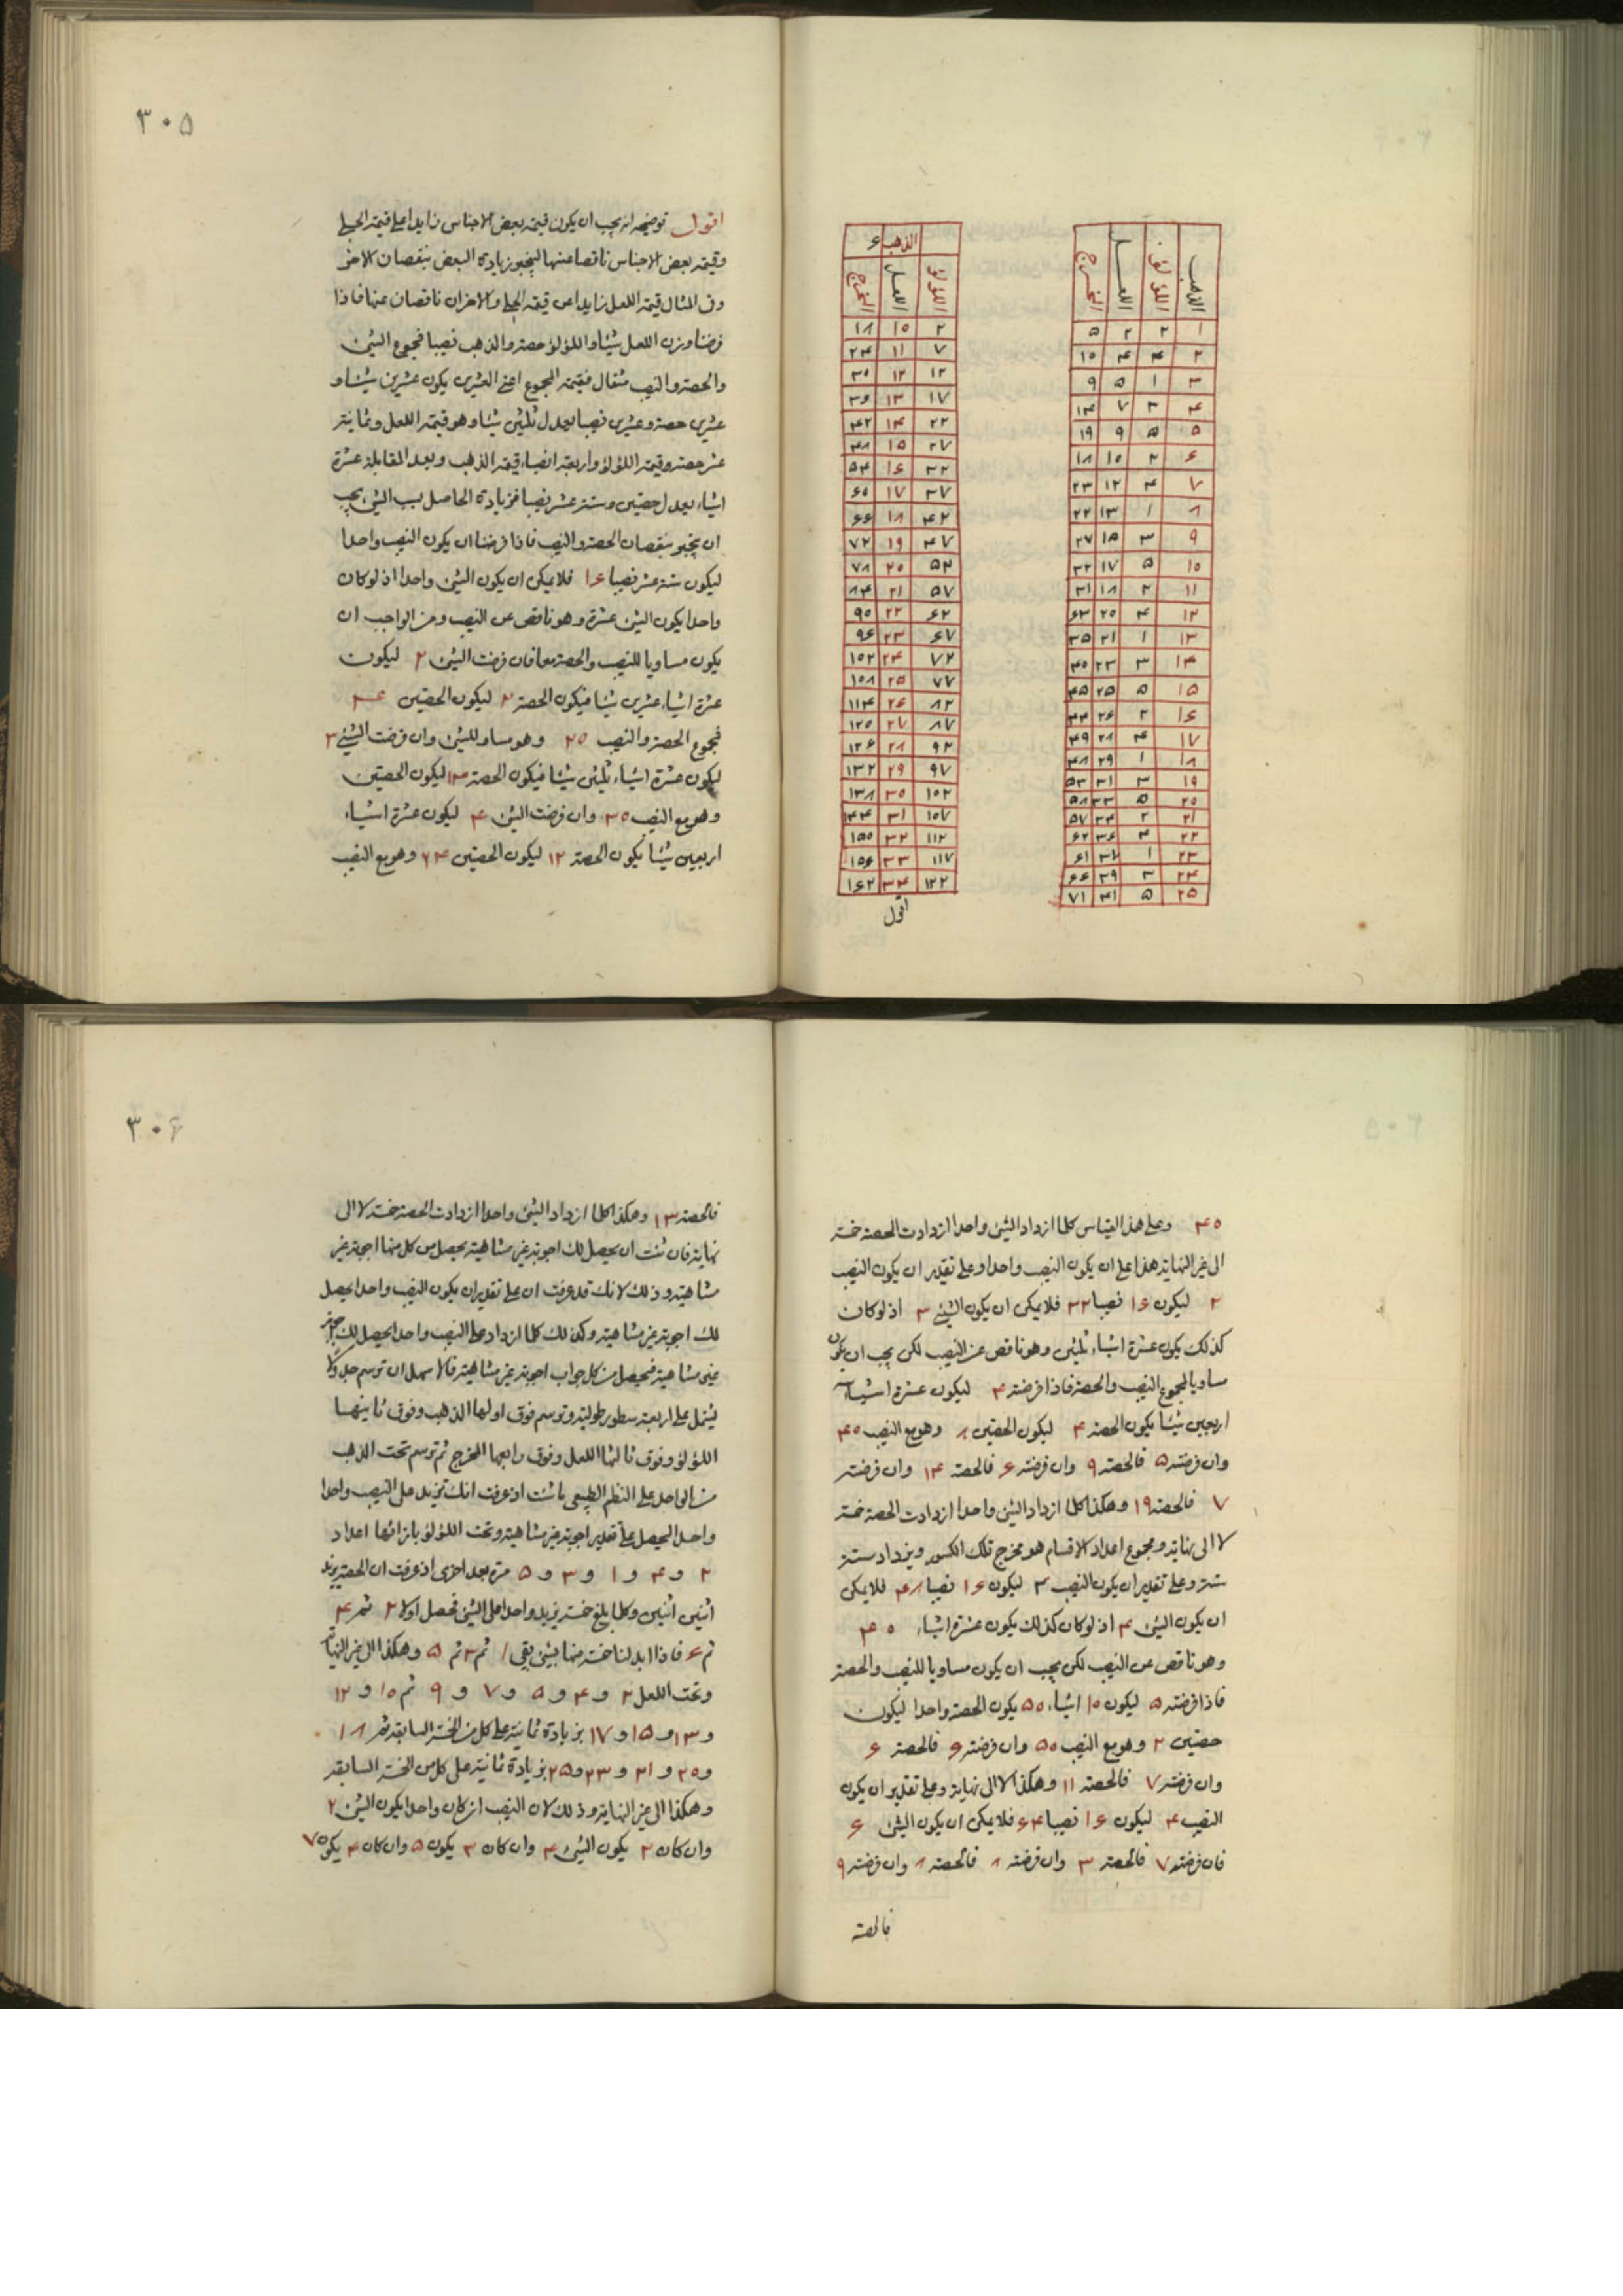 الذهب اللؤلؤ اللعل المخرج
۱ ۲ ۲ ۵
۲ ۴ ۴ ۱۰
۳ ۱ ۵ ۹
۴ ۳ ۷ ۱۴
۵ ۵ ۹ ۱۹
۶ ۲ ۱۰ ۱۸
۷ ۴ ۱۲ ۲۳
۸ ۱ ۱۳ ۲۲
۹ ۳ ۱۵ ۲۷
۱۰ ۵ ۱۷ ۳۲
۱۱ ۲ ۱۸ ۳۱
۱۲ ۴ ۲۰ ۶۳
۱۳ ۱ ۲۱ ۳۵
۱۴ ۳ ۲۳ ۴۰
۱۵ ۵ ۲۵ ۴۵
۱۶ ۲ ۲۶ ۴۴
۱۷ ۴ ۲۸ ۴۹
۱۸ ۱ ۲۹ ۴۸
۱۹ ۳ ۳۱ ۵۳
۲۰ ۵ ۳۳ ۵۸
۲۱ ۲ ۳۴ ۵۷
۲۲ ۴ ۳۶ ۶۲
۲۳ ۱ ۳۷ ۶۱
۲۴ ۳ ۳۹ ۶۶
۲۵ ۵ ۴۱ ۷۱
الذهب ۶
اللؤلؤ اللعل المخرج
۲ ۱۰ ۱۸
۷ ۱۱ ۲۴
۱۲ ۱۲ ۳۰
۱۷ ۱۳ ۳۶
۲۲ ۱۴ ۴۲
۲۷ ۱۵ ۴۸
۳۲ ۱۶ ۵۴
۳۷ ۱۷ ۶۰
۴۲ ۱۸ ۶۶
۴۷ ۱۹ ۷۲
۵۲ ۲۰ ۷۸
۵۷ ۲۱ ۸۴
۶۲ ۲۲ ۹۰
۶۷ ۲۳ ۹۶
۷۲ ۲۴ ۱۰۲
۷۷ ۲۵ ۱۰۸
۸۲ ۲۶ ۱۱۴
۸۷ ۲۷ ۱۲۰
۹۲ ۲۸ ۱۲۶
۹۷ ۲۹ ۱۳۲
۱۰۲ ۳۰ ۱۳۸
۱۰۷ ۳۱ ۱۴۴
۱۱۲ ۳۲ ۱۵۰
۱۱۷ ۳۳ ۱۵۶
۱۲۲ ۳۴ ۱۶۲
اقول
۳۰۵
اقول توضيحه انه يجب ان يكون قيمة بعض الاجناس زايدا على قيمة الحلى
وقيمة بعض الاجناس ناقصا عنها لينجبر زيادة البعض بنقصان الاخر
وفى المثال قيمة اللعل زايدا عن قيمة الحلى والاخران ناقصان عنها فاذا
فرضنا وزن اللعل شيئا واللؤلؤ حصة والذهب نصيبا فمجموع الشئ
والحصة والنصيب مثقال فقيمة المجموع اعنى العشرين يكون عشرين شيئا و
عشرين حصة وعشرين نصيبا يعدل ثلثين شيئا وهو قيمة اللعل وثمانية
عشر حصة وقيمة اللؤلؤ واربعة انصباء قيمة الذهب وبعد المقابلة عشرة
اشياء يعدل حصتين وستة عشر نصيبا فزيادة الحاصل بسبب الشئ يجب
ان ينجبر بنقصان الحصة والنصيب فاذا فرضنا ان يكون النصيب واحدا
ليكون ستة عشر نصيبا ۱۶ فلا يمكن ان يكون الشئ واحدا اذ لو كان
واحدا يكون الشئ عشرة وهو ناقص عن النصيب ومن الواجب ان
يكون مساويا للنصيب والحصة معا فان فرضت الشئ ۲ ليكون
عشرة اشياء عشرين شيئا فيكون الحصة ۲ ليكون الحصتين ۴
فمجموع الحصة والنصيب ۲۰ وهو مساو للشئ وان فرضت الشئ ۳
ليكون عشرة اشياء ثلثين شيئا فيكون الحصة ليكون الحصتين
وهو مع النصيب ۳۰ وان فرضت الشئ ۴ ليكون عشرة اشياء
اربعين شيئا يكون الحصة ۱۲ ليكون الحصتين ۲۴ وهو مع النصيب
۴۰ وعلى هذا القياس كلما ازداد الشئ واحدا ازدادت الحصة خمسة
الى غير النهاية هذا على ان يكون النصيب واحدا وعلى تقدير ان يكون النصيب
۲ ليكون ۱۶ نصيبا ۳۲ فلا يمكن ان يكون الشئ ۳ اذ لو كان
كذلك يكون عشرة اشياء ثلثين وهو ناقص عن النصيب لكن يجب ان يكون
مساويا لمجموع النصيب والحصة فاذا فرضته ۴ ليكون عشرة اشياء
اربعين شيئا يكون الحصة ۴ ليكون الحصتين ۸ وهو مع النصيب ۴۰
وان فرضته ۵ فالحصة ۹ وان فرضته ۶ فالحصة ۱۴ وان فرضته
۷ فالحصة ۱۹ وهكذا كلما ازداد الشئ واحدا ازدادت الحصة خمسة
لا الى نهاية ومجموع اعداد الاقسام هو مخرج تلك الكسور ويزداد ستة
ستة وعلى تقدير ان يكون النصيب ۳ ليكون ۱۶ نصيبا ۴۸ فلا يمكن
ان يكون الشئ ۴ اذ لو كان كذلك يكون عشرة اشياء ۴۰
وهو ناقص عن النصيب لكن يجب ان يكون مساويا للنصيب والحصة
فاذا فرضته ۵ ليكون ۱۰ اشياء ۵۰ يكون الحصة واحدا ليكون
حصتين ۲ وهو مع النصيب ۵۰ وان فرضته ۶ فالحصة ۶
وان فرضته ۷ فالحصة ۱۱ وهكذا لا الى نهاية وعلى تقدير ان يكون
النصيب ۴ ليكون ۱۶ نصيبا ۶۴ فلا يمكن ان يكون الشئ ۶
فان فرضته ۷ فالحصة ۳ وان فرضته ۸ فالحصة ۸ وان فرضته ۹
فالحصة
۳۰۶
فالحصة ۱۳ وهكذا كلما ازداد الشئ واحدا ازدادت الحصة خمسة لا الى
نهاية فان شئت ان يحصل لك اجوبة غير متناهية يحصل من كل منها اجوبة غير
متناهية وذلك لانك قد عرفت ان على تقدير ان يكون النصيب واحدا يحصل
لك اجوبة غير متناهية وكذلك كلما ازداد على النصيب واحدا يحصل لك اجوبة
غير متناهية فيحصل من كل جواب اجوبة غير متناهية فالاسهل ان ترسم جدولا
يشتمل على اربعة سطور طولية وترسم فوق اولها الذهب وفوق ثانيها
اللؤلؤ وفوق ثالثها اللعل وفوق رابعها المخرج ثم ترسم تحت الذهب
من الواحد على النظم الطبيعى ما شئت اذ عرفت انك تزيد على النصيب واحدا
واحدا ليحصل على تقدير اجوبة غير متناهية وتحت اللؤلؤ بازائها اعداد
۲ و ۴ و ۱ و ۳ و ۵ مرة بعد اخرى اذ عرفت ان الحصة يزيد
اثنين اثنين وكلما بلغ خمسة يزيد واحدا على الشئ فحصل اولا ۲ ثم ۴
ثم ۶ فاذا ابدلنا خمسة منها بشئ بقى ۱ ثم ۳ ثم ۵ وهكذا الى غير النهاية
وتحت اللعل ۲ و ۴ و ۵ و ۷ و ۹ ثم ۱۰ و ۱۲
و ۱۳ و ۱۵ و ۱۷ بزيادة ثمانية على كل من الخمسة السابقة ثم ۱۸
و ۲۰ و ۲۱ و ۲۳ و ۲۵ بزيادة ثمانية على كل من الخمسة السابقة
وهكذا الى غير النهاية وذلك لان النصيب ان كان واحدا يكون الشئ ۲
وان كان ۲ يكون الشئ ۴ وان كان ۳ يكون ۵ وان كان ۴ يكون ۷